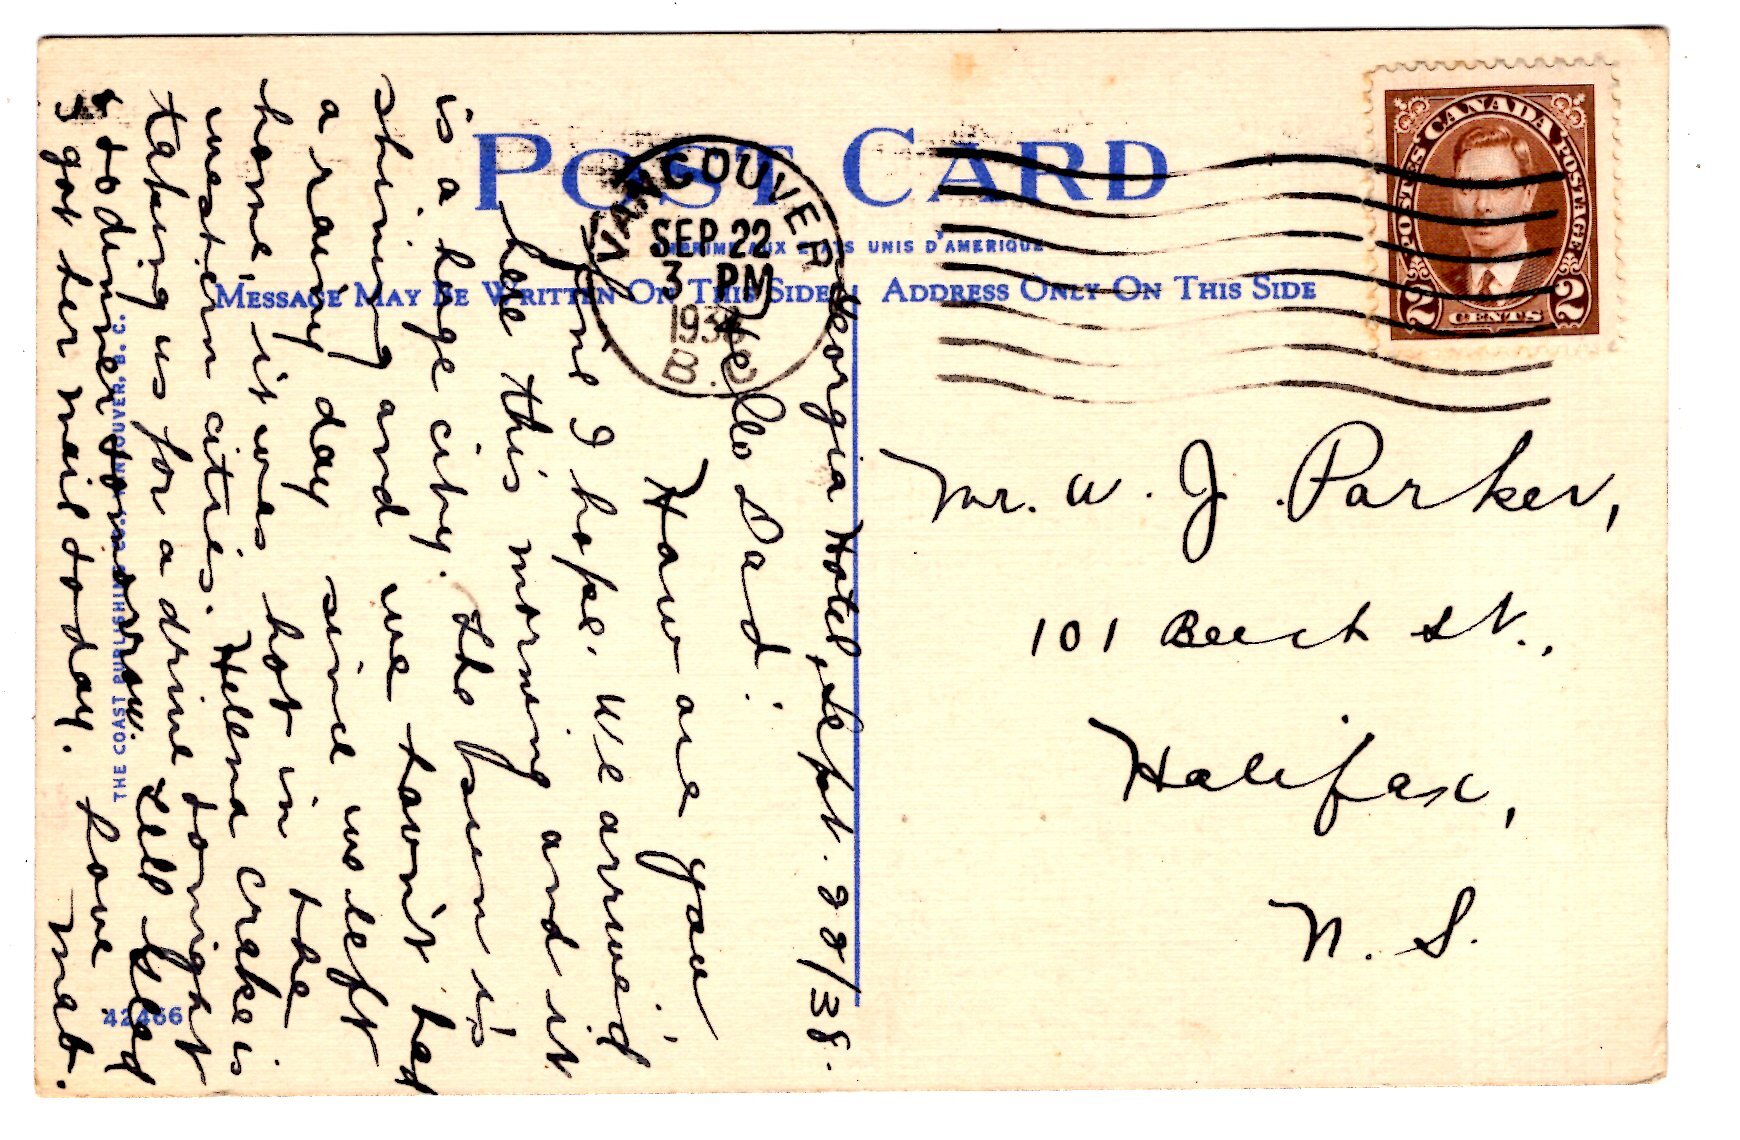 POST CARD
IMPRIMÉ AUX ETATS UNIS D'AMERIQUE
MESSAGE MAY BE WRITTEN ON THIS SIDE
ADDRESS ONLY ON THIS SIDE
VANCOUVER
SEP 22
3 PM
1938
B.C.
CANADA
POSTES POSTAGE
2 CENTS 2
Georgia Hotel, Sept. 22/38.
Hello Dad:
How are you
fine I hope. We arrived
here this morning and it
is a huge city. The sun is
shining and we haven't had
a rainy day since we left
home, it was hot in the
western cities. Hellena Creke is
taking us for a drive tonight
& to dinner tomorrow. Tell
I got her mail today. Love
Meb.
Mr. W. J. Parker,
101 Beech St.,
Halifax,
N. S.
THE COAST PUBLISHING CO., VANCOUVER, B. C.
42466